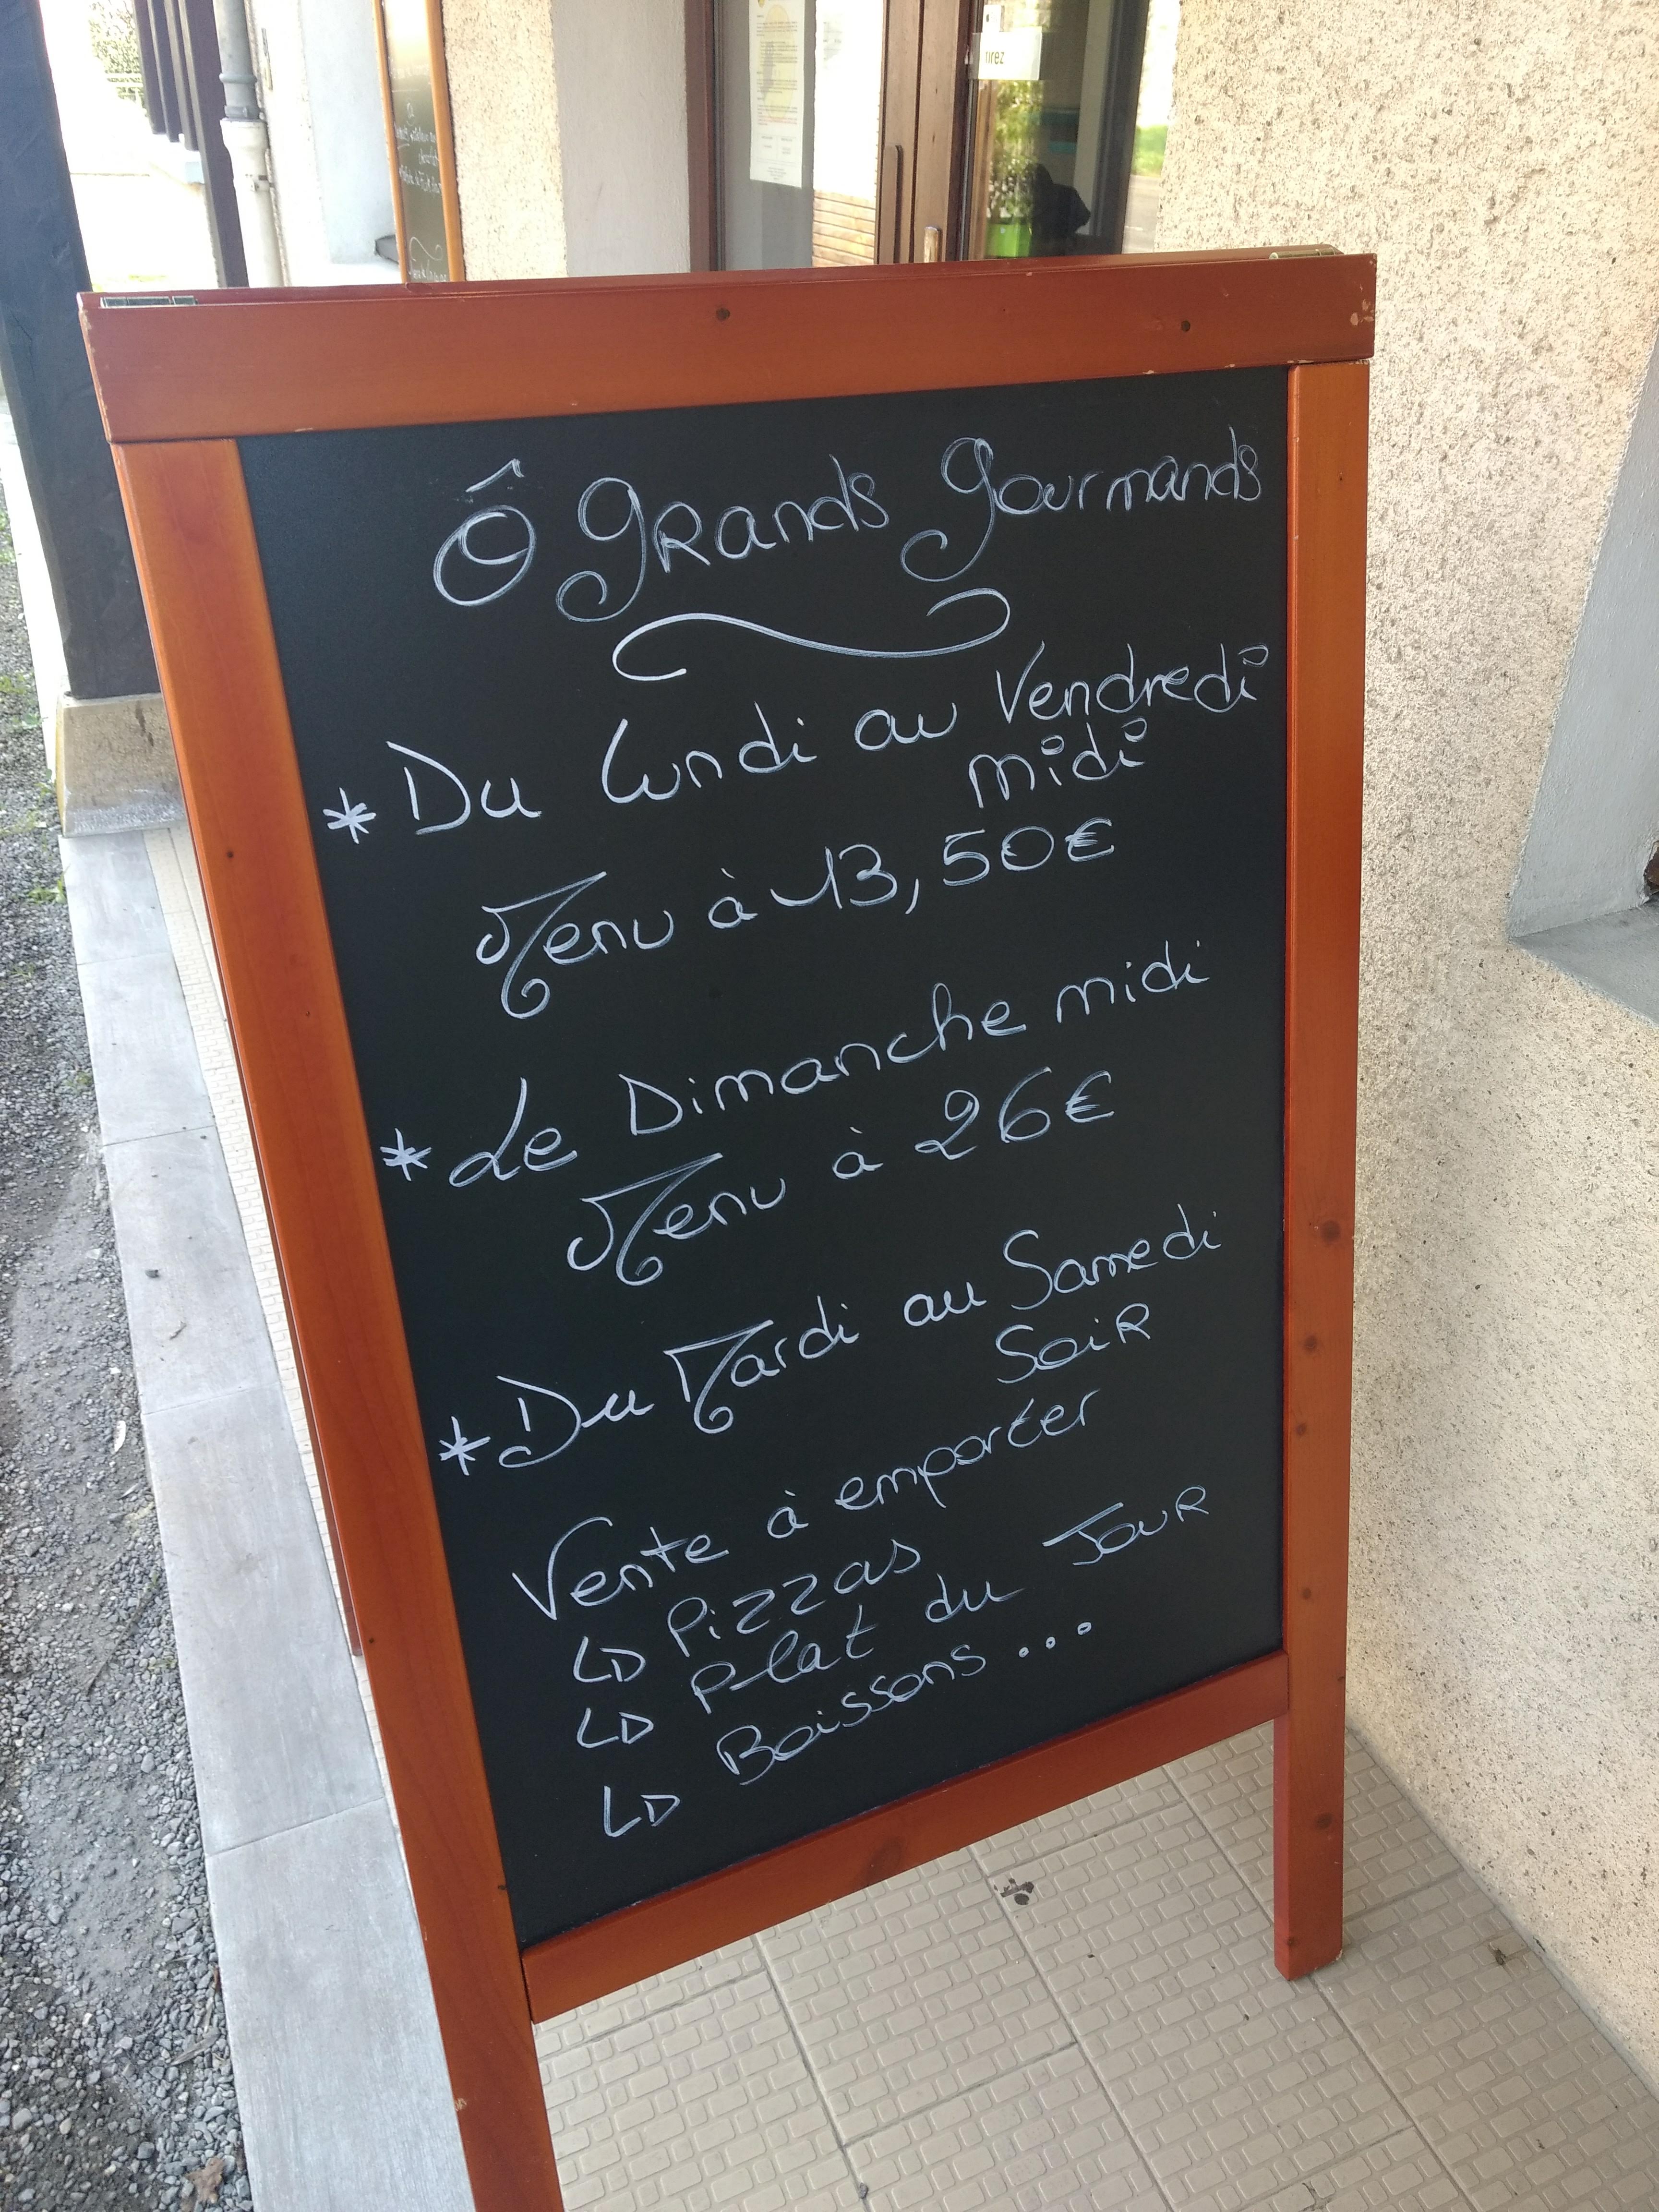 tirez
Ô grands gourmands
* Du lundi au Vendredi
midi
Menu à 13,50€
* Le Dimanche midi
Menu à 26€
* Du Mardi au Samedi
Soir
Vente à emporter
↳ Pizzas
↳ Plat du Jour
↳ Boissons ...